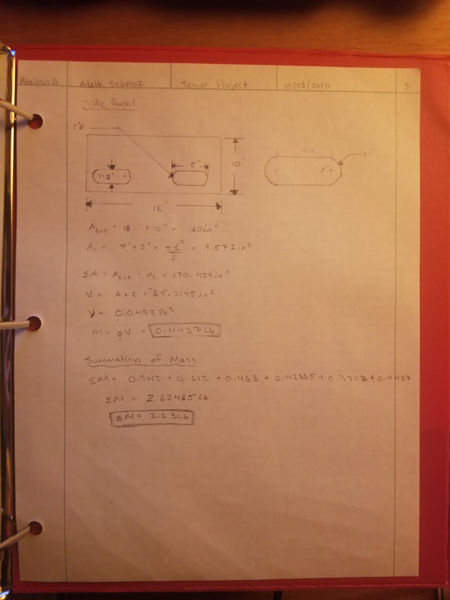 Matt Schronk Senior Project 10/28/2020 5
Side Panel
5"
10"
18"
A = 18" × 10" = 180in²
A = 4" × 2" + = 9.571in²
ΣA = A - A = 170.429in²
V = A × t = 85.2145in³
V = 0.0493ft³
m = ρV = 0.4437 Lb
Summation of Mass
ΣM = 0.342 + 0.612 + 0.468 + + 0.3308 + 0.4437
ΣM = 2.62485 Lb
ΣM = 2.63 Lb